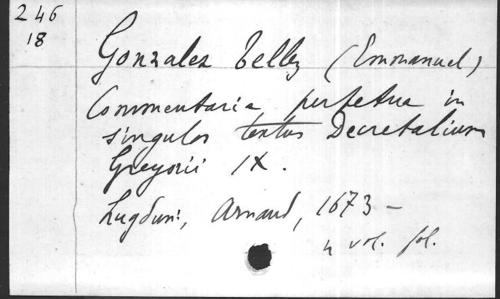 246
18
Gonzales Tellez (Emmanuel)
Commentaria perpetua in
singulos textus Decretalium
Gregorii IX.
Lugduni, Arnaud, 1673 -
4 vol. fol.